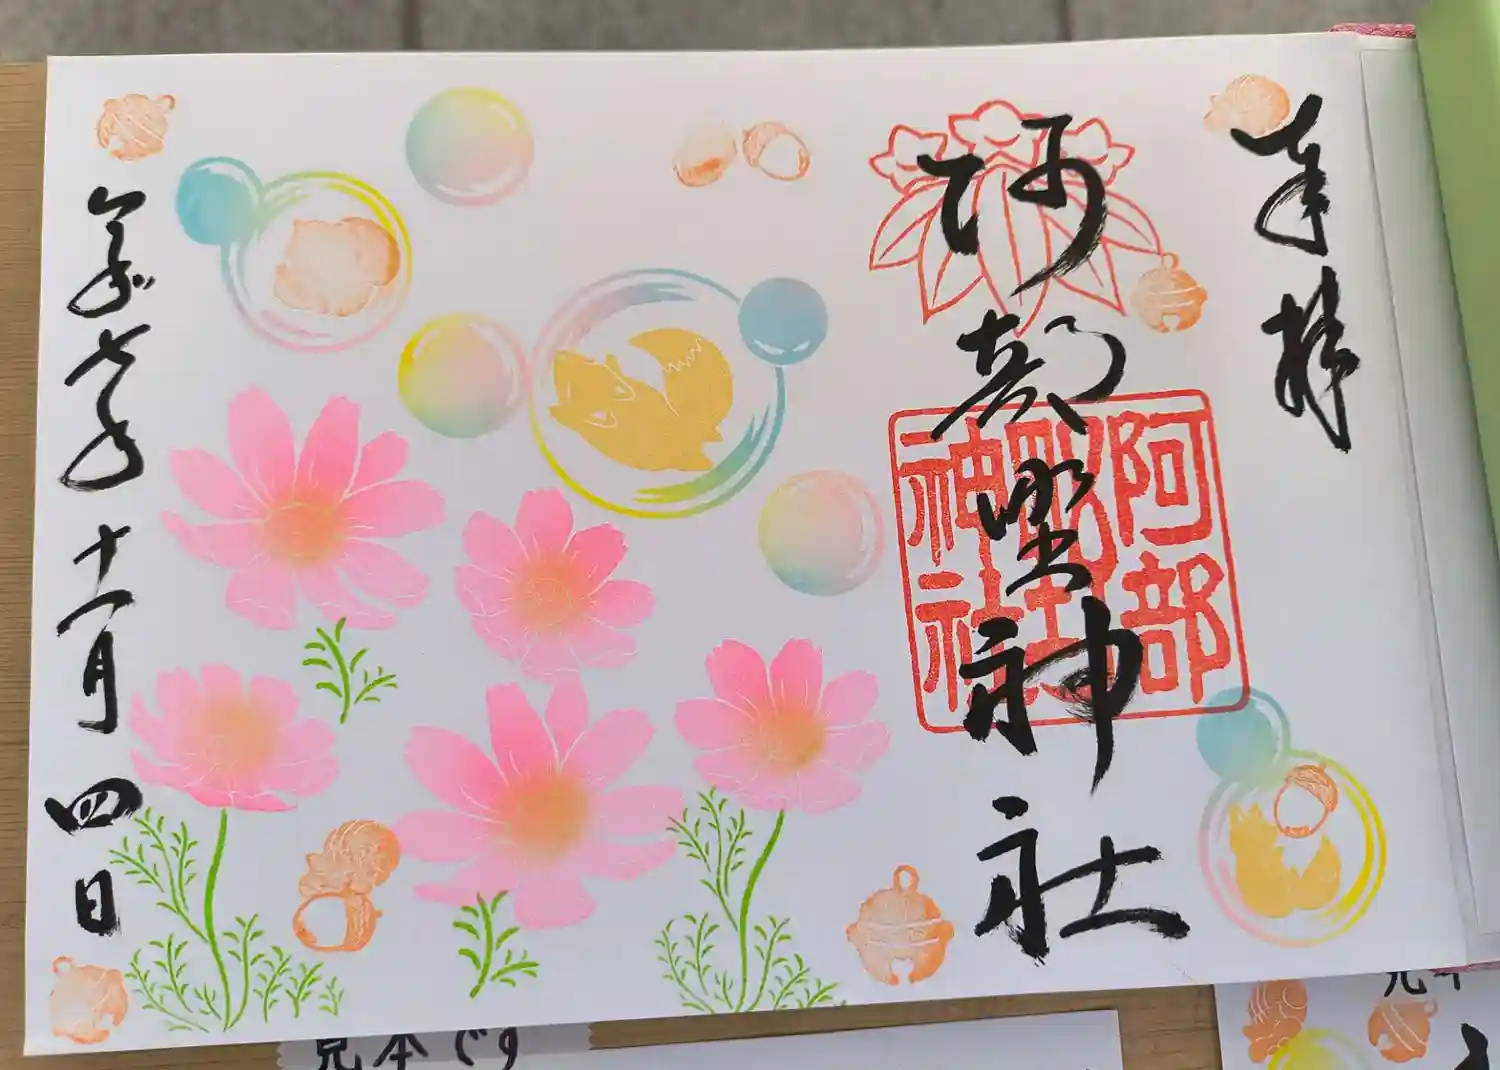 奉拝
阿部墅神社
阿部
墅
神社
令和七年十一月四日
見本です
見本